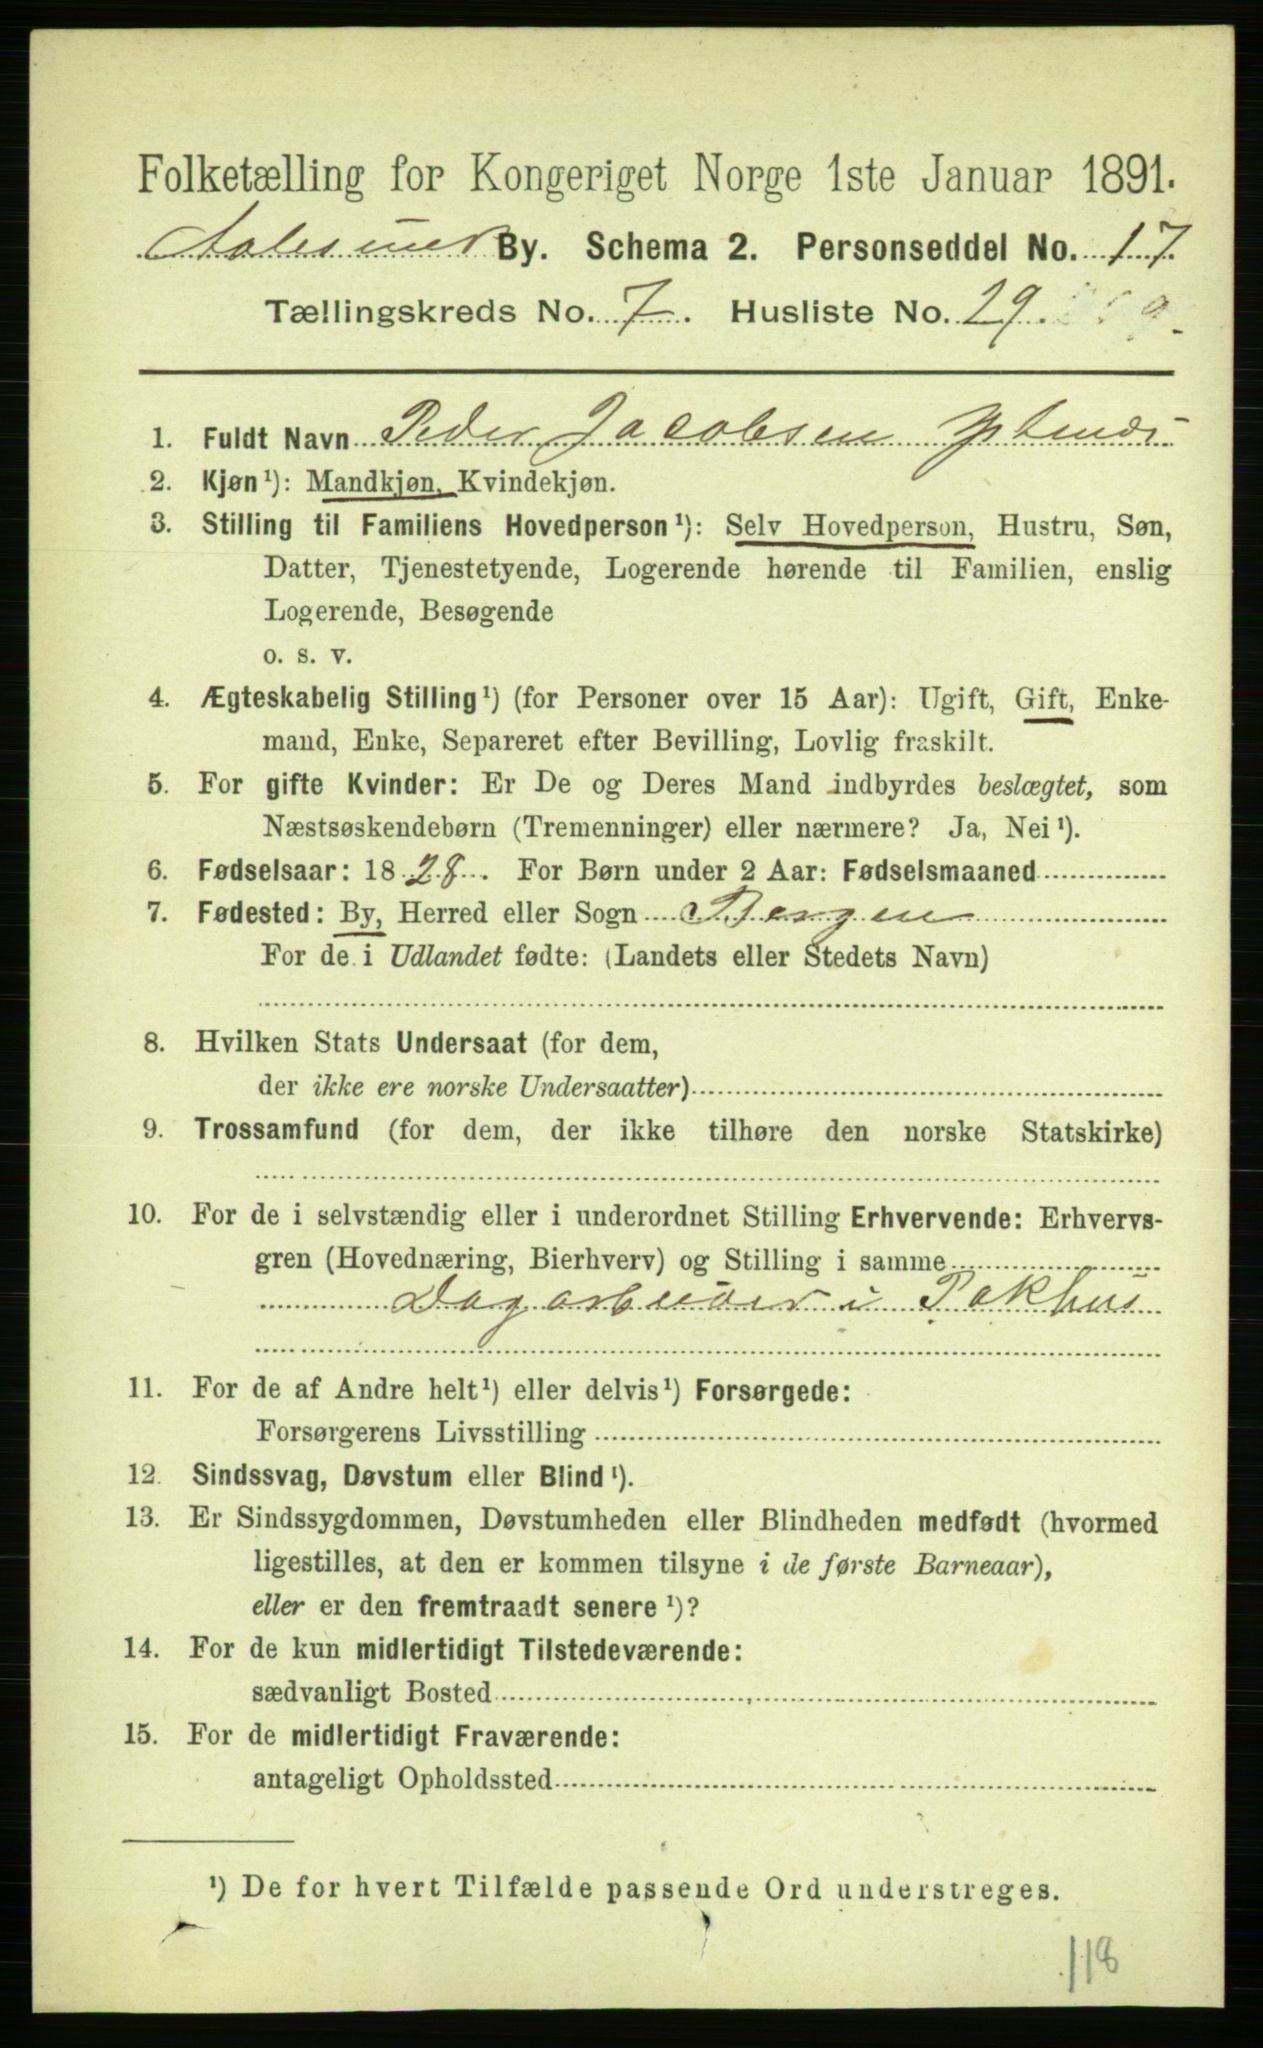 Folketælling for Kongeriget Norge 1ste Januar 1891.
Aalesund By. Schema 2. Personseddel No. 17.
Tællingskreds No. 7. Husliste No. 29.
1. Fuldt Navn Peder Jacobsen
2. Kjøn¹): Mandkjøn, Kvindekjøn.
3. Stilling til Familiens Hovedperson¹): Selv Hovedperson, Hustru, Søn,
Datter, Tjenestetyende, Logerende hørende til Familien, enslig
Logerende, Besøgende
o. s. v.
4. Ægteskabelig Stilling¹) (for Personer over 15 Aar): Ugift, Gift, Enke-
mand, Enke, Separeret efter Bevilling, Lovlig fraskilt.
5. For gifte Kvinder: Er De og Deres Mand indbyrdes beslægtet, som
Næstsøskendebørn (Tremenninger) eller nærmere? Ja, Nei¹).
6. Fødselsaar: 1828. For Børn under 2 Aar: Fødselsmaaned
7. Fødested: By, Herred eller Sogn Bergen
For de i Udlandet fødte: (Landets eller Stedets Navn)
8. Hvilken Stats Undersaat (for dem,
der ikke ere norske Undersaatter)
9. Trossamfund (for dem, der ikke tilhøre den norske Statskirke)
10. For de i selvstændig eller i underordnet Stilling Erhvervende: Erhvervs-
gren (Hovednæring, Bierhverv) og Stilling i samme
Dagarbeider i Pakhus
11. For de af Andre helt¹) eller delvis¹) Forsørgede:
Forsørgerens Livsstilling
12. Sindssvag, Døvstum eller Blind¹).
13. Er Sindssygdommen, Døvstumheden eller Blindheden medfødt (hvormed
ligestilles, at den er kommen tilsyne i de første Barneaar),
eller er den fremtraadt senere¹)?
14. For de kun midlertidigt Tilstedeværende:
sædvanligt Bosted
15. For de midlertidigt Fraværende:
antageligt Opholdssted
¹) De for hvert Tilfælde passende Ord understreges.
118